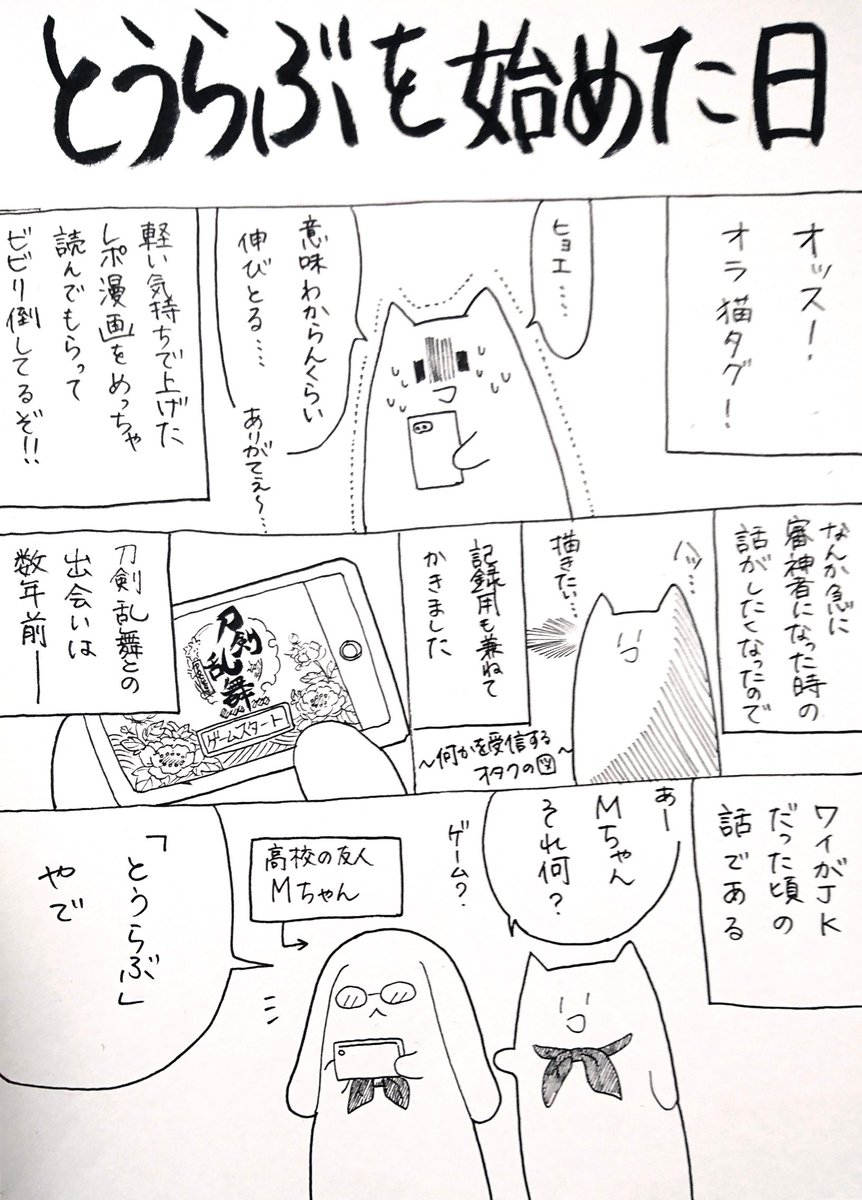 とうらぶを始めた日
オッス！
オラ猫タグ！
ヒョエ……
意味わからんくらい
伸びとる……
ありがてぇ〜…
軽い気持ちで上げた
レポ漫画をめっちゃ
読んでもらって
ビビリ倒してるぞ!!
なんか急に
審神者になった時の
話がしたくなったので
ハッ…
描きたい…
〜何かを受信する
オタクの図〜
記録用も兼ねて
かきました
刀剣乱舞との
出会いは
数年前──
刀剣
乱舞
ゲームスタート
ワイがJK
だった頃の
話である
あー
Mちゃん
それ何？
ゲーム？
高校の友人
Mちゃん
「とうらぶ」
やで